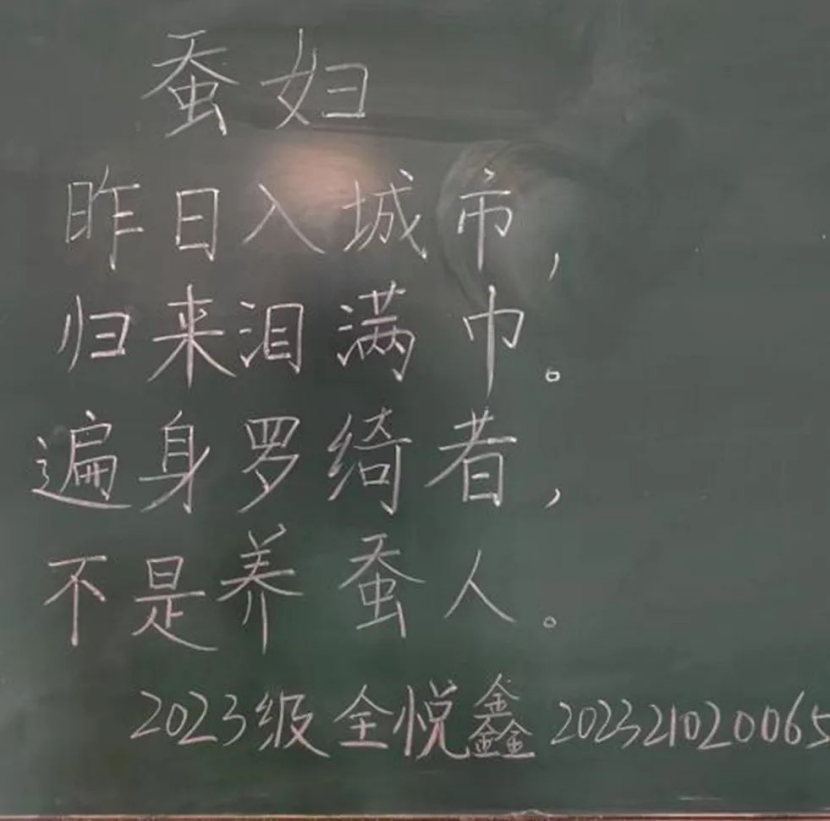 蚕妇
昨日入城市，
归来泪满巾。
遍身罗绮者，
不是养蚕人。
2023级全悦鑫 202321020065